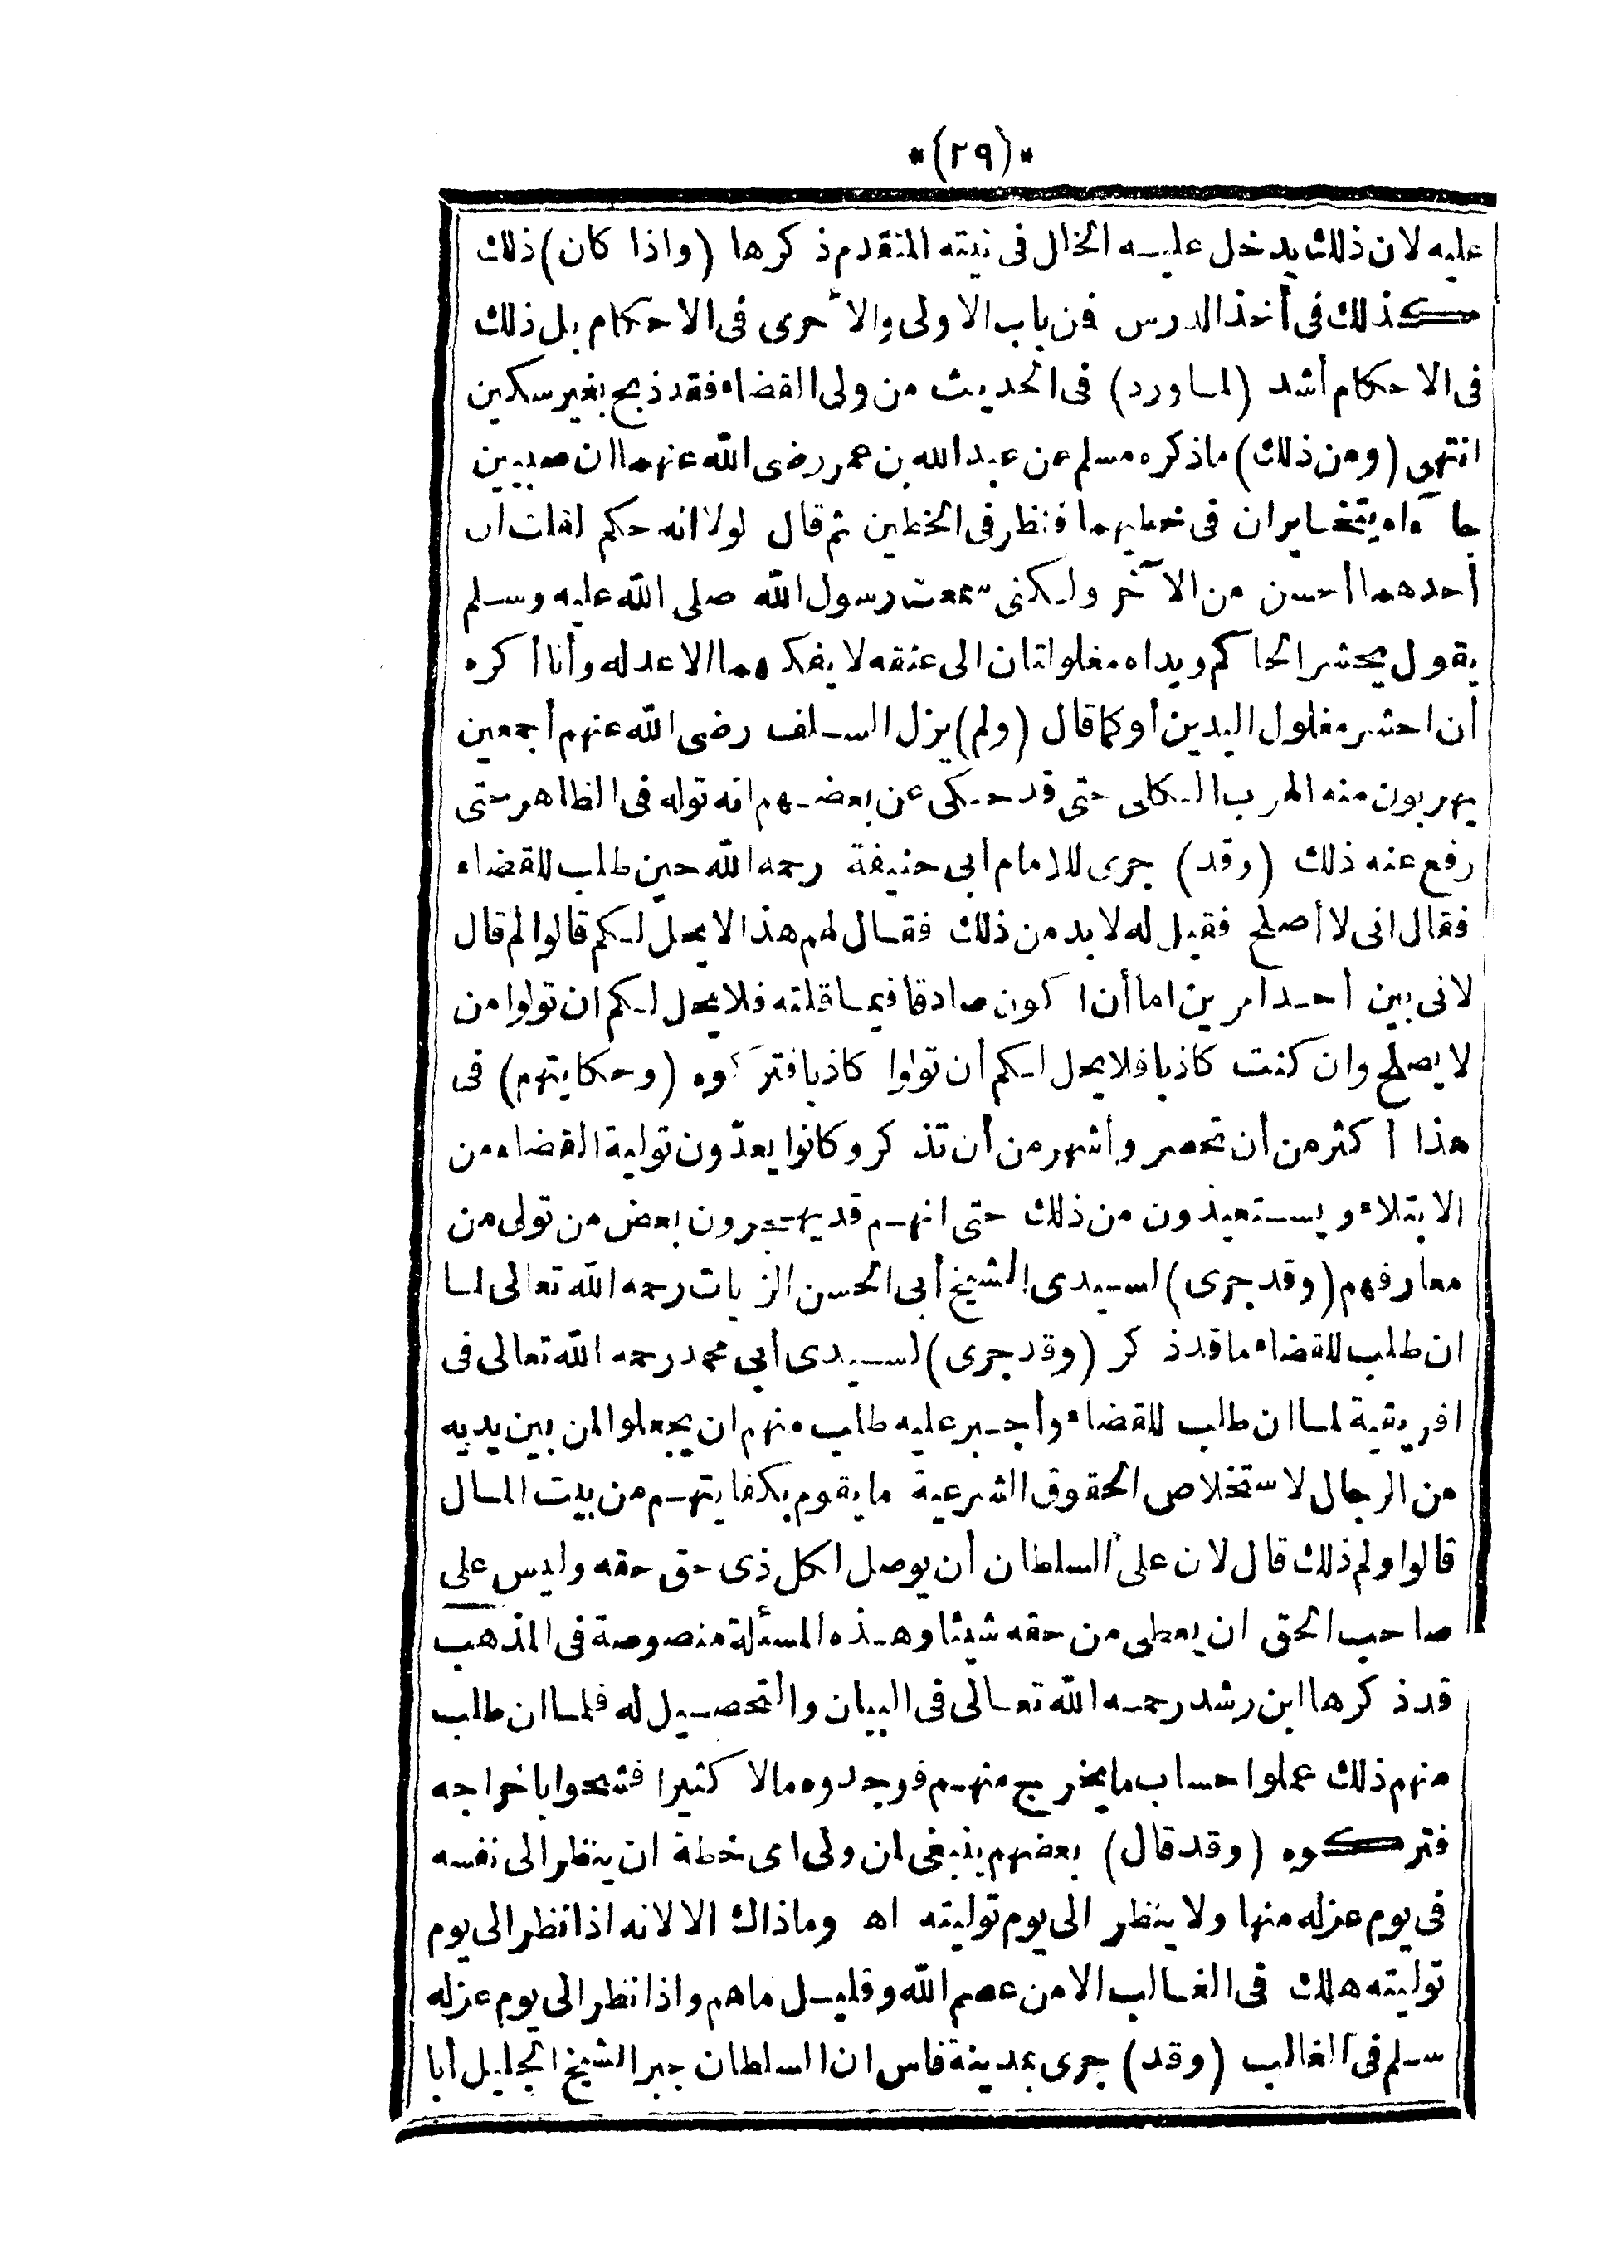 *(٢٩)*
عليه لان ذلك يدخل عليه الخال فى نيته المتقدم ذكرها (واذا كان) ذلك
كذلك فى أخذ الدرس فمن باب الاولى والاحرى فى الاحكام بل ذلك
فى الاحكام أشد (لما ورد) فى الحديث من ولى القضاء فقد ذبح بغير سكين
انتهى (ومن ذلك) ماذكره مسلم عن عبدالله بن عمر رضى الله عنهما ان صبيين
جا آه يتخايران فى خطيهما فنظر فى الخطين ثم قال لولا انه حكم لقلت ان
أحدهما أحسن من الآخر ولكنى سمعت رسول الله صلى الله عليه وسلم
يقول يحشر الحاكم ويداه مغلولتان الى عنقه لا يفكهما الا عدله وأنا أكره
أن احشر مغلول اليدين أو كما قال (ولم) يزل السلف رضى الله عنهم أجمعين
يهربون منه الهرب الكلى حتى قد حكى عن بعضهم انه توله فى الظاهر حتى
رفع عنه ذلك (وقد) جرى للامام أبى حنيفة رحمه الله حين طلب للقضاء
فقال انى لا أصلح فقيل له لابد من ذلك فقال لهم هذا لا يحل لكم قالوا لم قال
لانى بين أحد أمرين اما أن اكون صادقا فيما قلته فلا يحل لكم ان تولوا من
لا يصلح وان كنت كاذبا فلا يحل لكم أن تولوا كاذبا فتركوه (وحكايتهم) فى
هذا أكثر من أن تحصر وأشهر من أن تذكر وكانوا يعدّون تولية القضاء من
الابتلاء ويستعيذون من ذلك حتى انهم قد يهجرون بعض من تولى من
معارفهم (وقد جرى) لسيدى الشيخ أبى الحسن الزيات رحمه الله تعالى لما
ان طلب للقضاء ما قد ذكر (وقد جرى) لسيدى أبى محمد رحمه الله تعالى فى
افريقية لما ان طلب للقضاء وأجبر عليه طلب منهم ان يجعلوا لمن بين يديه
من الرجال لاستخلاص الحقوق الشرعية ما يقوم بكفايتهم من بيت المال
قالوا ولم ذلك قال لان على السلطان أن يوصل لكل ذى حق حقه وليس على
صاحب الحق ان يعطى من حقه شيئا وهذه المسئلة منصوصة فى المذهب
قد ذكرها ابن رشد رحمه الله تعالى فى البيان والتحصيل له فلما ان طلب
منهم ذلك عملوا حساب ما يخرج منهم فوجدوه مالا كثيرا فشحوا باخراجه
فتركوه (وقد قال) بعضهم ينبغى لمن ولى اى خطة ان ينظر الى نفسه
فى يوم عزله منها ولا ينظر الى يوم توليته اه وماذاك الا لانه اذا نظر الى يوم
توليته هلك فى الغالب الا من عصم الله وقليل ماهم واذا نظر الى يوم عزله
سلم فى الغالب (وقد) جرى بمدينة فاس ان السلطان جبر الشيخ الجليل أبا